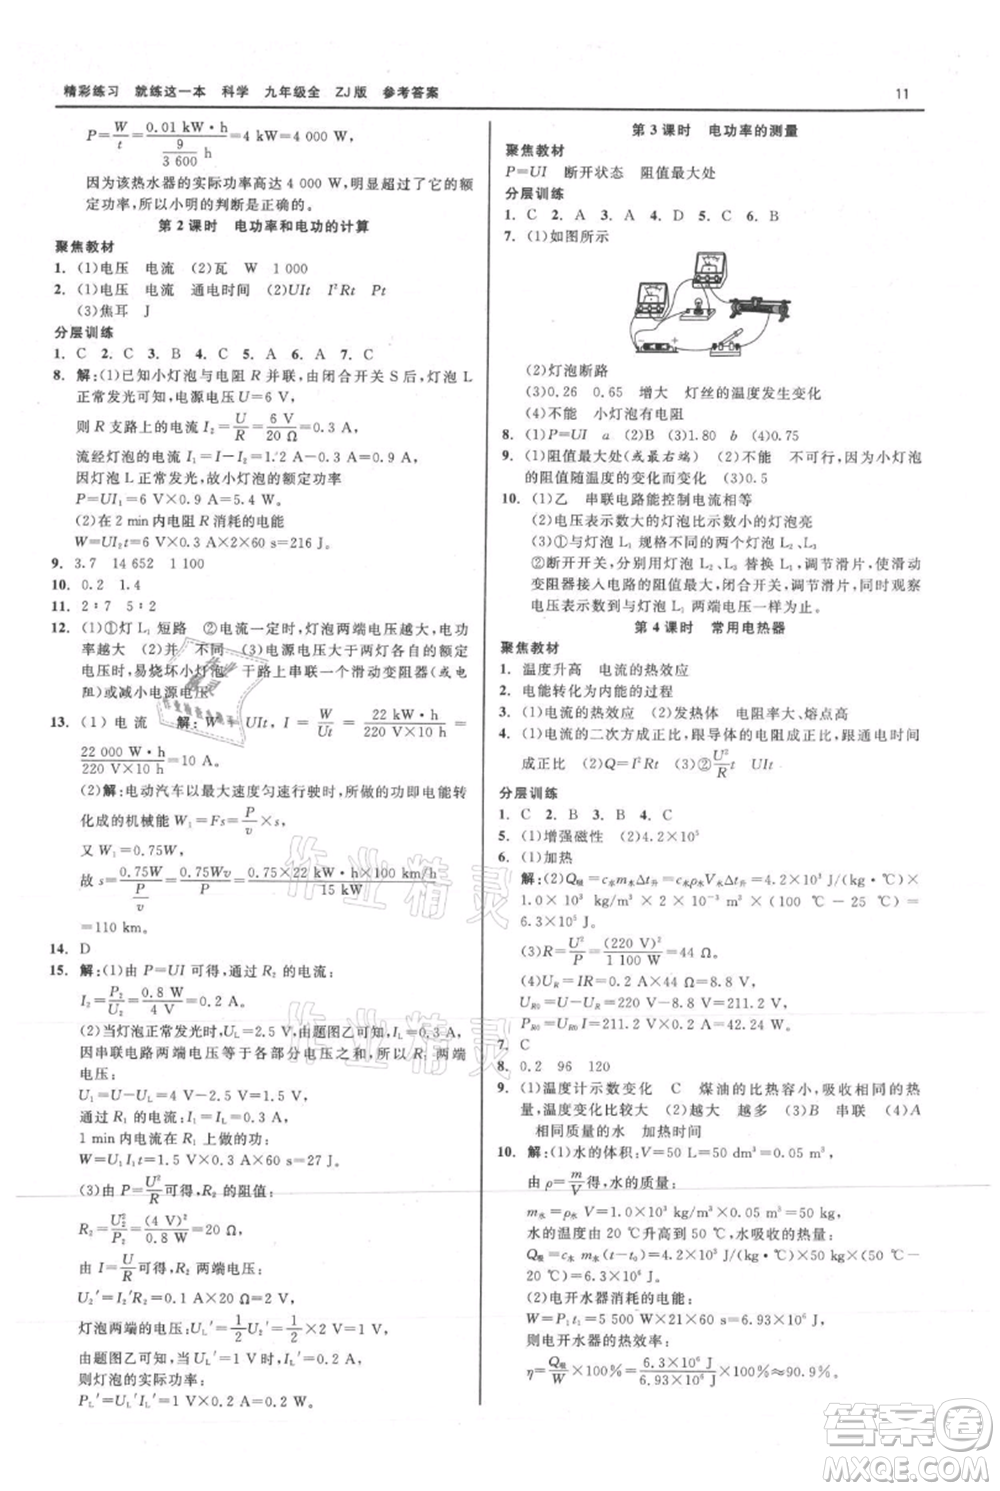 精彩练习 就练这一本 科学 九年级全 ZJ版 参考答案 11
P=W/t=0.01 kW·h/(9/3 600 h)=4 kW=4 000 W
因为该热水器的实际功率高达 4 000 W,明显超过了它的额
定功率,所以小明的判断是正确的。
第 2 课时 电功率和电功的计算
聚焦教材
1. (1)电压 电流 (2)瓦 W 1 000
2. (1)电压 电流 通电时间 (2)UIt I²Rt Pt
(3)焦耳 J
分层训练
1. C 2. C 3. B 4. C 5. A 6. A 7. C
8. 解:(1)已知小灯泡与电阻 R 并联,由闭合开关 S后,灯泡 L
正常发光可知,电源电压U=6 V,
则 R 支路上的电流 I₂=U/R=6 V/20 Ω=0.3 A,
流经灯泡 L 的电流 I₁=I-I₂=1.2 A-0.3 A=0.9 A,
因灯泡 L 正常发光,故小灯泡的额定功率
P=UI₁=6 V×0.9 A=5.4 W。
(2)在 2 min内电阻 R 消耗的电能
W=UI₂t=6 V×0.3 A×2×60 s=216 J。
9. 3.7 14 652 1 100
10. 0.2 1.4
11. 2∶7 5∶2
12. (1)①灯 L₁ 短路 ②电流一定时,灯泡两端电压越大,电功
率越大 (2)并 不同 (3)电源电压大于两灯各自的额定
电压,易烧坏小灯泡 干路上串联滑动变阻器(或串联定值电
阻)或减小电源电压
13. (1)电流 解:W=UIt,I=W/Ut=22 kW·h/(220 V×10 h)=
22 000 W·h/(220 V×10 h)=10 A。
(2)解:电动汽车以最大速度匀速行驶时,所做的功即电能转
化成的机械能 W₁=Fs=P/v×s,
又 W₁=0.75W,
故 s=0.75W/(P/v)=0.75Wv/P=0.75×22 kW·h×100 km/h/15 kW
=110 km。
14. D
15. 解:(1)由 P=UI 可得,通过 R₂ 的电流:
I₂=P₂/U₂=0.8 W/4 V=0.2 A。
(2)当灯泡正常发光时,U_L=2.5 V,由题图乙可知,I_L=0.3 A,
因串联电路两端电压等于各部分电压之和,所以 R₁ 两端
电压:
U₁=U-U_L=4 V-2.5 V=1.5 V,
通过 R₁ 的电流:I₁=I_L=0.3 A,
1 min内电流在 R₁ 上做的功:
W=U₁I₁t=1.5 V×0.3 A×60 s=27 J。
(3)由 P=U²/R可得,R₂ 的阻值:
R₂=U₂²/P₂=(4 V)²/0.8 W=20 Ω,
由 I=U/R可得,R₂ 两端电压:
U₂′=I₂′R₂=0.1 A×20 Ω=2 V,
灯泡两端的电压:U_L′=1/2U₂′=1/2×2 V=1 V,
由题图乙可知,此时通过灯泡的电流:I_L′=0.2 A,
则灯泡的实际功率:
P_L′=U_L′I_L′=1 V×0.2 A=0.2 W。
第 3 课时 电功率的测量
聚焦教材
P=UI 断开状态 阻值最大处
分层训练
1. C 2. A 3. A 4. D 5. C 6. B
7. (1)如图所示
(2)灯泡断路
(3)0.26 0.65 增大 灯丝的温度发生变化
(4)不能 小灯泡有电阻
8. (1)P=UI a (2)B (3)1.80 b (4)0.75
9. (1)阻值最大处(或最右端) (2)不能 不可行,因为小灯泡
的阻值随温度的变化而变化 (3)0.5
10. (1)乙 串联电路能控制电流相等
(2)电压表示数大的灯泡比示数小的灯泡亮
(3)①与灯泡 L₁ 规格不同的两个灯泡 L₂、L₃
②断开开关,分别用灯泡 L₂、L₃ 替换 L₁,调节滑片,使滑动
变阻器接入电路的阻值最大,闭合开关,调节滑片,同时观察
电压表示数,直至与灯泡 L₁ 两端电压一样为止。
第 4 课时 常用电热器
聚焦教材
1. 温度升高 电流的热效应
2. 电能转化为内能的过程
3. (1)电流的热效应 (2)发热体 电阻率大、熔点高
4. (1)电流的二次方成正比,跟导体的电阻成正比,跟通电时间
成正比 (2)Q=I²Rt (3)②U²/R t UIt
分层训练
1. C 2. B 3. B 4. C
5. (1)增强磁性 (2)4.2×10⁵
6. (1)加热
解:(2)Q吸=c水m水Δt升=c水ρ水V水Δt升=4.2×10³ J/(kg·℃)×
1.0×10³ kg/m³×2×10⁻³ m³×(100 ℃-25 ℃)=
6.3×10⁵ J。
(3)R=U²/P=(220 V)²/1 100 W=44 Ω。
(4)U_R=IR=0.2 A×44 Ω=8.8 V,
U_R0=U-U_R=220 V-8.8 V=211.2 V,
P_R0=U_R0 I=211.2 V×0.2 A=42.24 W。
7. C
8. 0.2 96 120
9. (1)温度计示数变化 C 煤油的比热容小,吸收相同的热
量,温度变化比较大 (2)越大 越多 (3)B 串联 (4)A
相同质量的水 加热时间
10. 解:(1)水的体积:V=50 L=50 dm³=0.05 m³,
由 ρ=m/V得,水的质量:
m水=ρ水V=1.0×10³ kg/m³×0.05 m³=50 kg,
水的温度由 20 ℃升高到 50 ℃,水吸收的热量:
Q吸=c水m水(t-t₀)=4.2×10³ J/(kg·℃)×50 kg×(50 ℃-
20 ℃)=6.3×10⁶ J。
(2)电开水器消耗的电能:
W=P₁t₁=5 500 W×21×60 s=6.93×10⁶ J,
则电开水器的热效率:
η=Q吸/W×100%=6.3×10⁶ J/6.93×10⁶ J×100%≈90.9%。
作业精灵
作业精灵
答案圈
MXQE.COM